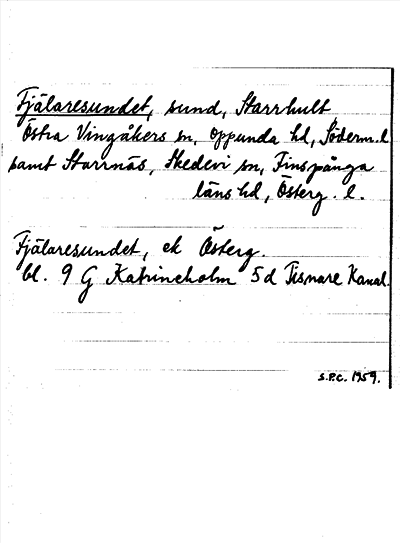 Fjälaresundet, sund, Starrhult
Östra Vingåkers sn, Oppunda hd, Söderm. l
samt Starrnäs, Skedevi sn, Finspånga
läns hd, Österg. l.
Fjälaresundet, ek Österg.
bl. 9 G Katrineholm 5d Tisnare Kanal.
S.P.C. 1959.